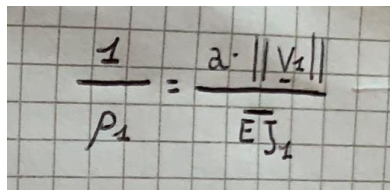 1/ρ₁ = a· ||V̲₁|| / E̅J₁